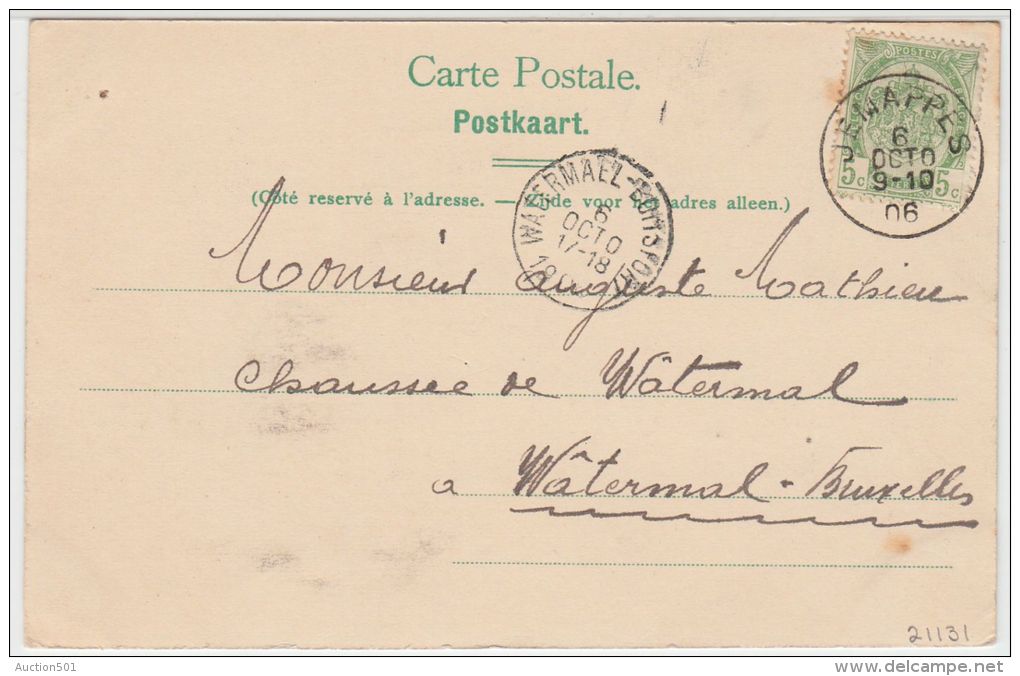 Carte Postale.
Postkaart.
(Côté reservé à l'adresse. — Zijde voor adres alleen.)
POSTES
5c 5c
JEMAPPES
6
OCTO
9-10
06
WATERMAEL-BOITSFORT
6
OCTO
17-18
Monsieur Auguste Mathieu
Chaussée de Wâtermal
a Wâtermal - Bruxelles
21131
Auction501
www.delcampe.net